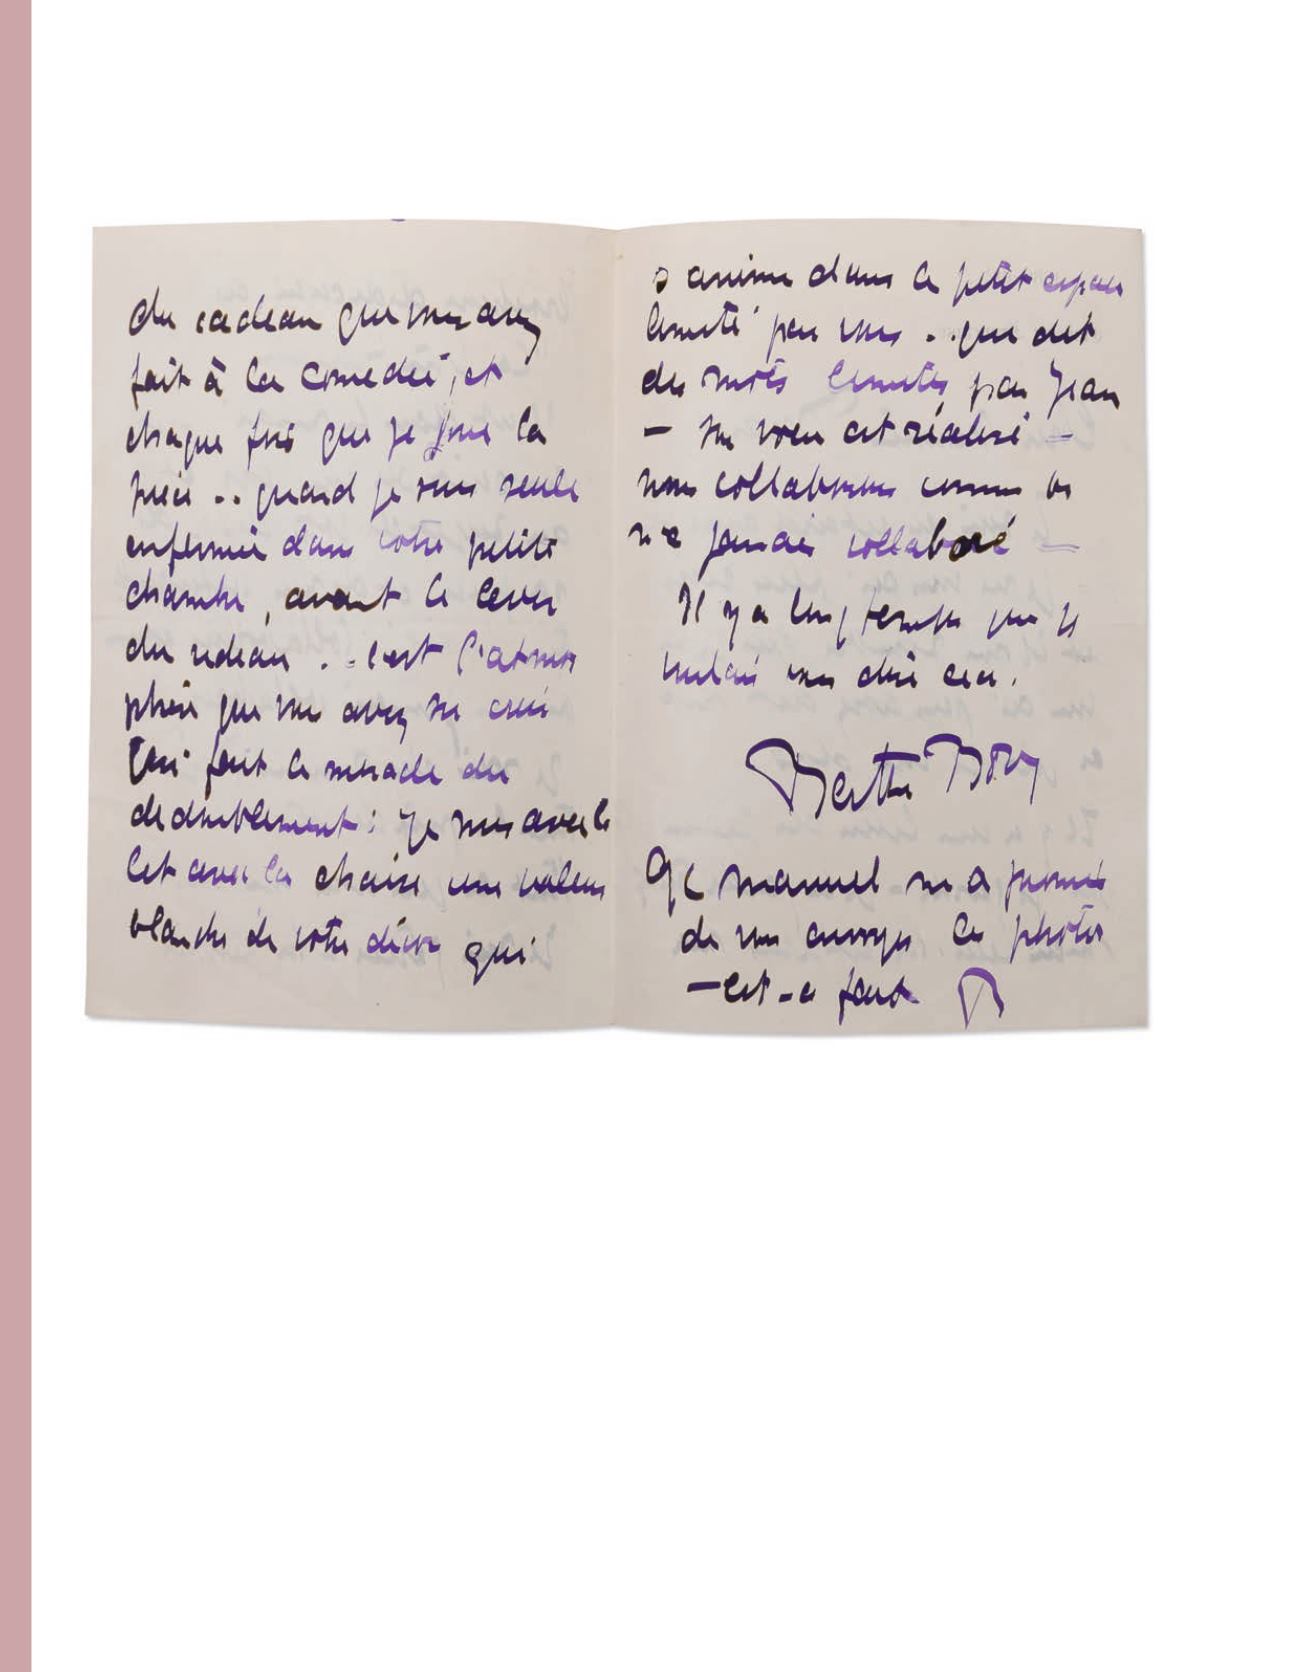 du cadeau que vous avez
fait à la comedie, et
chaque fois que je joue la
piece .. quand je suis seule
enfermée dans votre petite
chambre, avant le lever
du rideau .. c'est l'atmos
phère que vous avez su créer
qui fait le miracle du
dedoublement : je suis avec le
lit avec la chaise une valeur
blanche de votre décor qui
s anime dans le petit espace
limité par vous .. qui dit
des mots limités par Jean
— son voeu est réalisé —
nous collaborons comme on
n'a jamais collaboré —
Il y a longtemps que je
voulais vous dire cela.
Berthe Bovy
Manuel m a promis
de vous envoyer les photos
— est-ce fait B